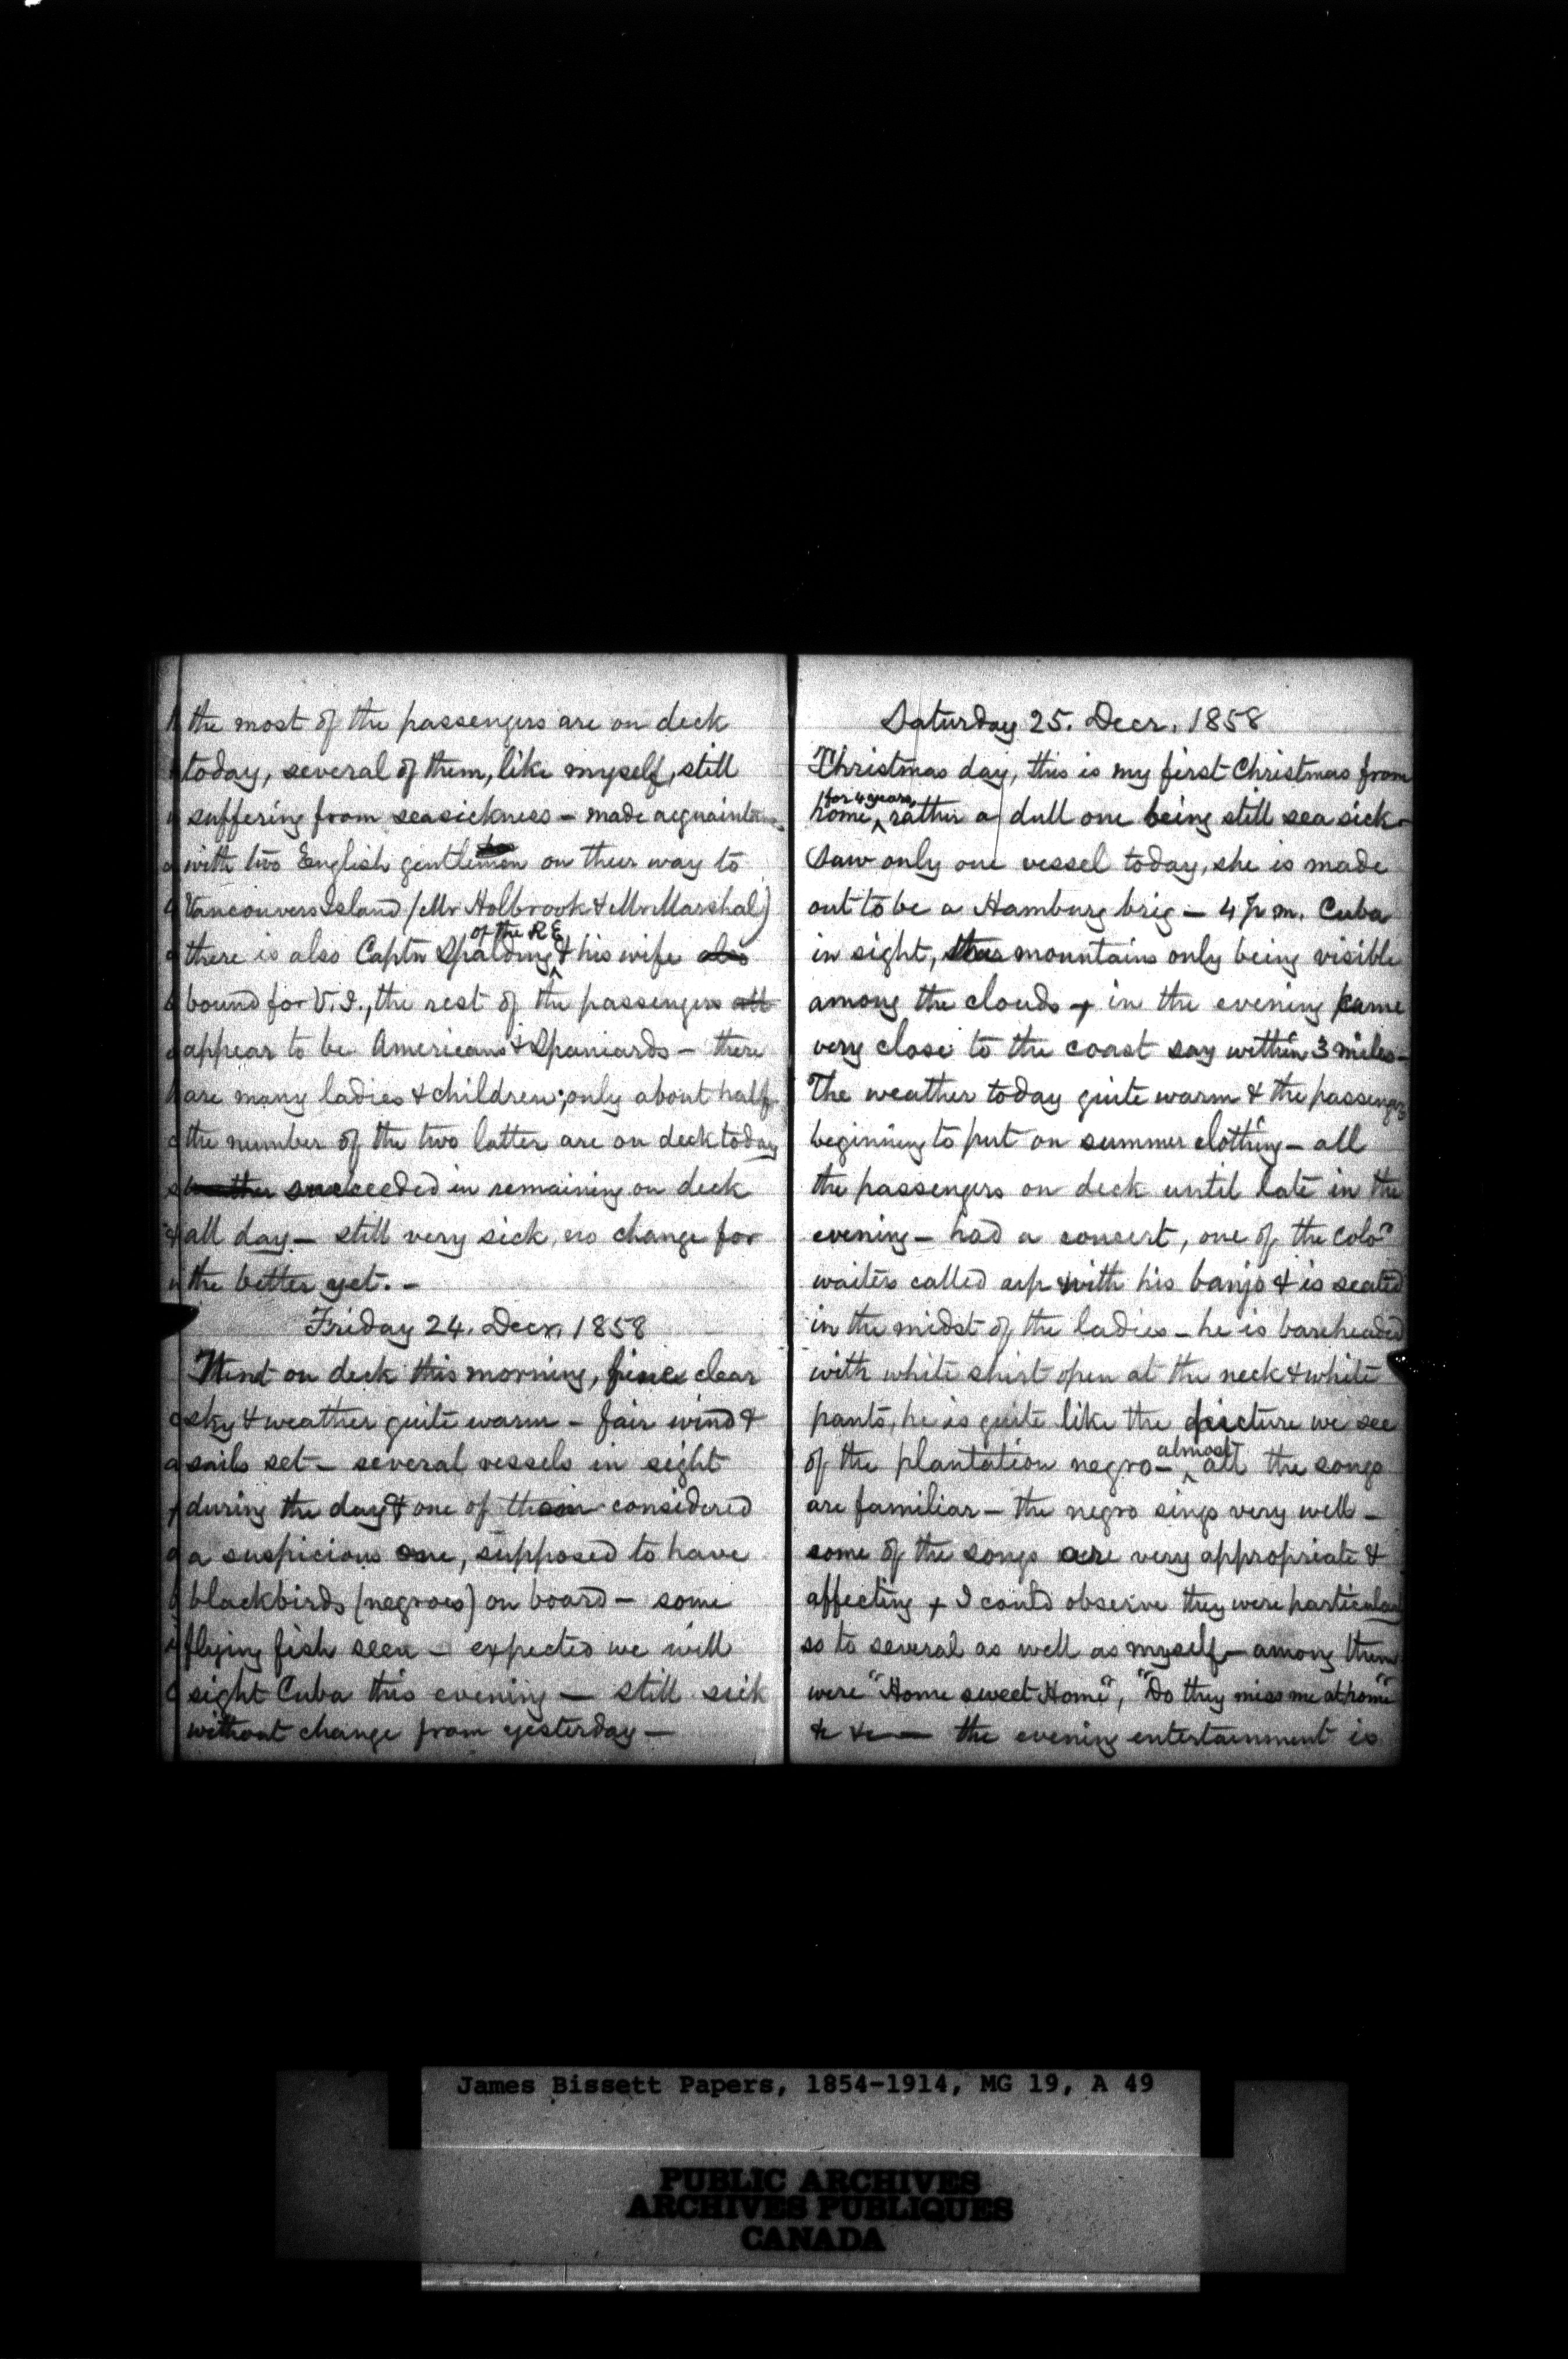 the most of the passengers are on deck
today, several of them, like myself, still
suffering from seasickness - made acquaintance
with two English gentlemen on their way to
Vancouvers Island (Mr Holbrook & Mr Marshal)
of the RE
there is also Captn Spalding & his wife also
bound for V.I., the rest of the passengers all
appear to be Americans & Spaniards - there
are many ladies & children; only about half
the number of the two latter are on deck today
succeeded in remaining on deck
all day - still very sick, no change for
the better yet. -
Friday 24. Decr. 1858
Went on deck this morning, fine clear
sky & weather quite warm - fair wind &
sails set - several vessels in sight
during the day & one of them considered
a suspicious one, supposed to have
blackbirds (negroes) on board - some
flying fish seen - expected we will
sight Cuba this evening - still sick
without change from yesterday -
Saturday 25. Decr. 1858
Christmas day, this is my first Christmas from
for 4 years,
home, rather a dull one being still sea sick -
Saw only one vessel today, she is made
out to be a Hamburg brig - 4 p.m. Cuba
in sight, mountains only being visible
among the clouds + in the evening came
very close to the coast say within 3 miles -
The weather today quite warm & the passengers
beginning to put on summer clothing - all
the passengers on deck until late in the
evening - had a concert, one of the colo"
waiters called up with his banjo & is seated
in the midst of the ladies - he is bareheaded
with white shirt open at the neck & white
pants, he is quite like the picture we see
almost
of the plantation negro - all the songs
are familiar - the negro sings very well -
some of the songs are very appropriate &
affecting + I could observe they were particularly
so to several as well as myself - among them
were "Home sweet Home", "Do they miss me at home"
&c &c - the evening entertainment is
James Bissett Papers, 1854-1914, MG 19, A 49
PUBLIC ARCHIVES
ARCHIVES PUBLIQUES
CANADA